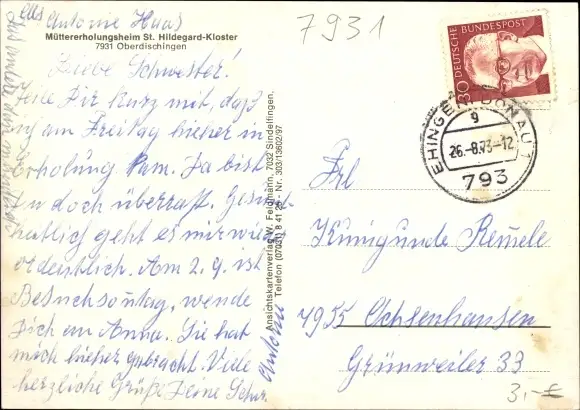 aus Antonie Haas
7931
Müttererholungsheim St. Hildegard-Kloster
7931 Oberdischingen
Liebe Schwester!
Teile Dir kurz mit, daß
ich am Freitag hieher in
Erholung kam. Da bist
Du doch überrascht. Gesund-
heitlich geht es mir wieder
ordentlich. Am 2.9. ist
Besuchsontag, wende
Dich an Anna. Sie hat
mich hieher gebracht. Viele
herzliche Grüße Deine Schw.
Antonie
Ansichtskartenverlag W. Feldmann, 7032 Sindelfingen,
Telefon (07031) 8 41 26 Nr. 303/13602/97
DEUTSCHE BUNDESPOST
30
EHINGEN (DONAU) 1
g
26.-8.73-12
793
Frl
Kunigunde Remele
7955 Ochsenhausen
Grünweiler 33
3,-€